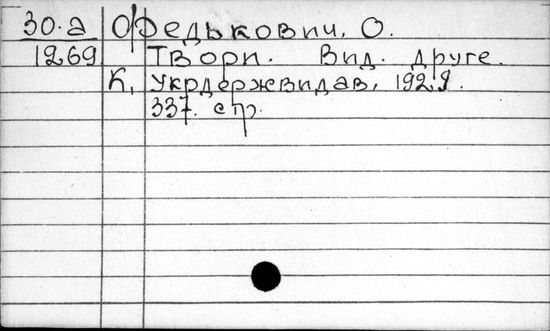 30.а Федькович, О.
1269 Твори. Вид. друге.
К, Укрдержвидав, 1929.
337. стр.